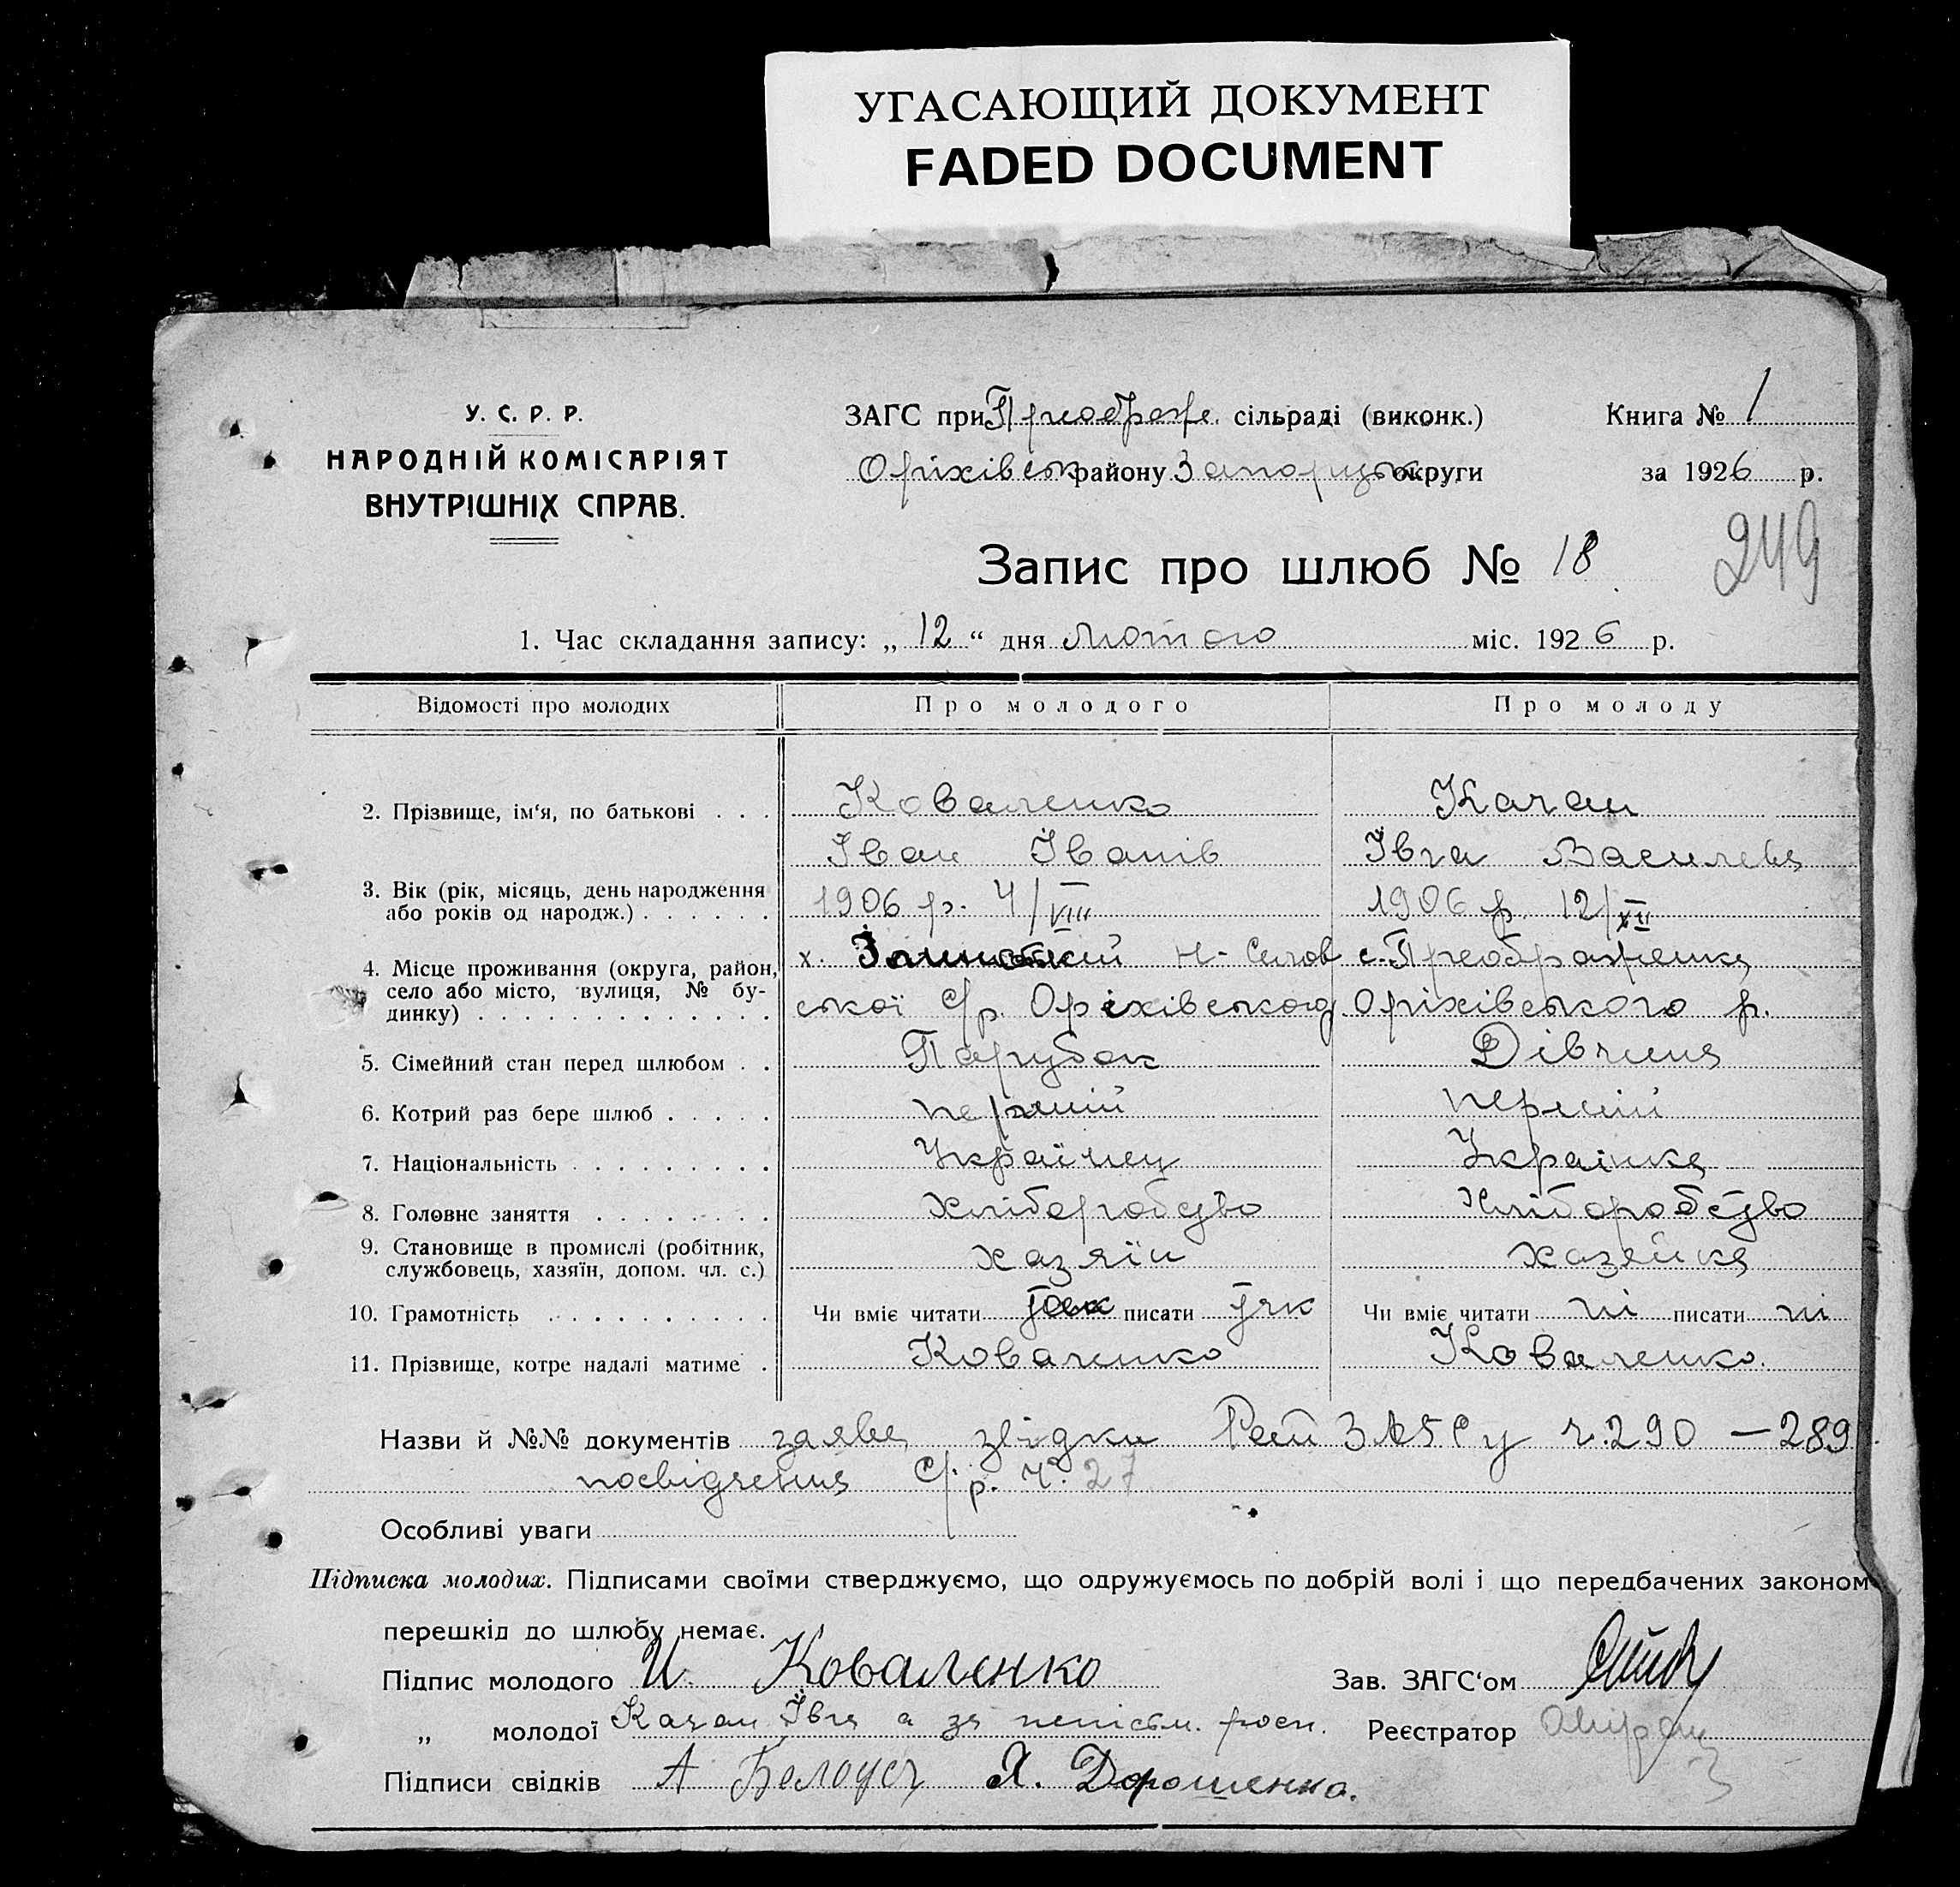 УГАСАЮЩИЙ ДОКУМЕНТ
FADED DOCUMENT
У. С. Р. Р.
НАРОДНІЙ КОМІСАРІЯТ
ВНУТРІШНІХ СПРАВ.
ЗАГС при Преображ. сільраді (виконк.)
Оріхівськ району Запорізьк округи
Книга № 1
за 1926 р.
Запис про шлюб № 18
249
1. Час складання запису: „ 12 “ дня лютого міс. 1926 р.
Відомості про молодих Про молодого Про молоду
2. Прізвище, ім‘я, по батькові . . . Коваленко Качан
Іван Іванів Івга Василева
3. Вік (рік, місяць, день народження
або років од народж.) . . . . . . 1906 р. 4/VIII 1906 р. 12/XII
4. Місце проживання (округа, район, х. Н- с. Преображенка
село або місто, вулиця, № бу-
динку) . . . . . . . . . . . . . ської С/р. Оріхівського Оріхівського р.
5. Сімейний стан перед шлюбом . . Парубок Дівчина
6. Котрий раз бере шлюб . . . . . перший перший
7. Національність . . . . . . . . . Українец Українка
8. Головне заняття . . . . . . . . Хліборобство Хліборобство
9. Становище в промислі (робітник,
службовець, хазяїн, допом. чл. с.) хазяїн хазяйка
10. Грамотність . . . . . . . . . . Чи вміє читати писати Чи вміє читати ні писати ні
11. Прізвище, котре надалі матиме . Коваленко Коваленко.
Назви й №№ документів заява звідки ч. 290 — 289
посвідчення С/р. Ч. 27
Особливі уваги
Підписка молодих. Підписами своїми стверджуємо, що одружуємось по добрій волі і що передбачених законом
перешкід до шлюбу немає.
Підпис молодого И. Коваленко Зав. ЗАГС‘ом
„ молодої Качан Івга а за неписьм. росп. Реєстратор
Підписи свідків А Белоус Я. Дорошенко.